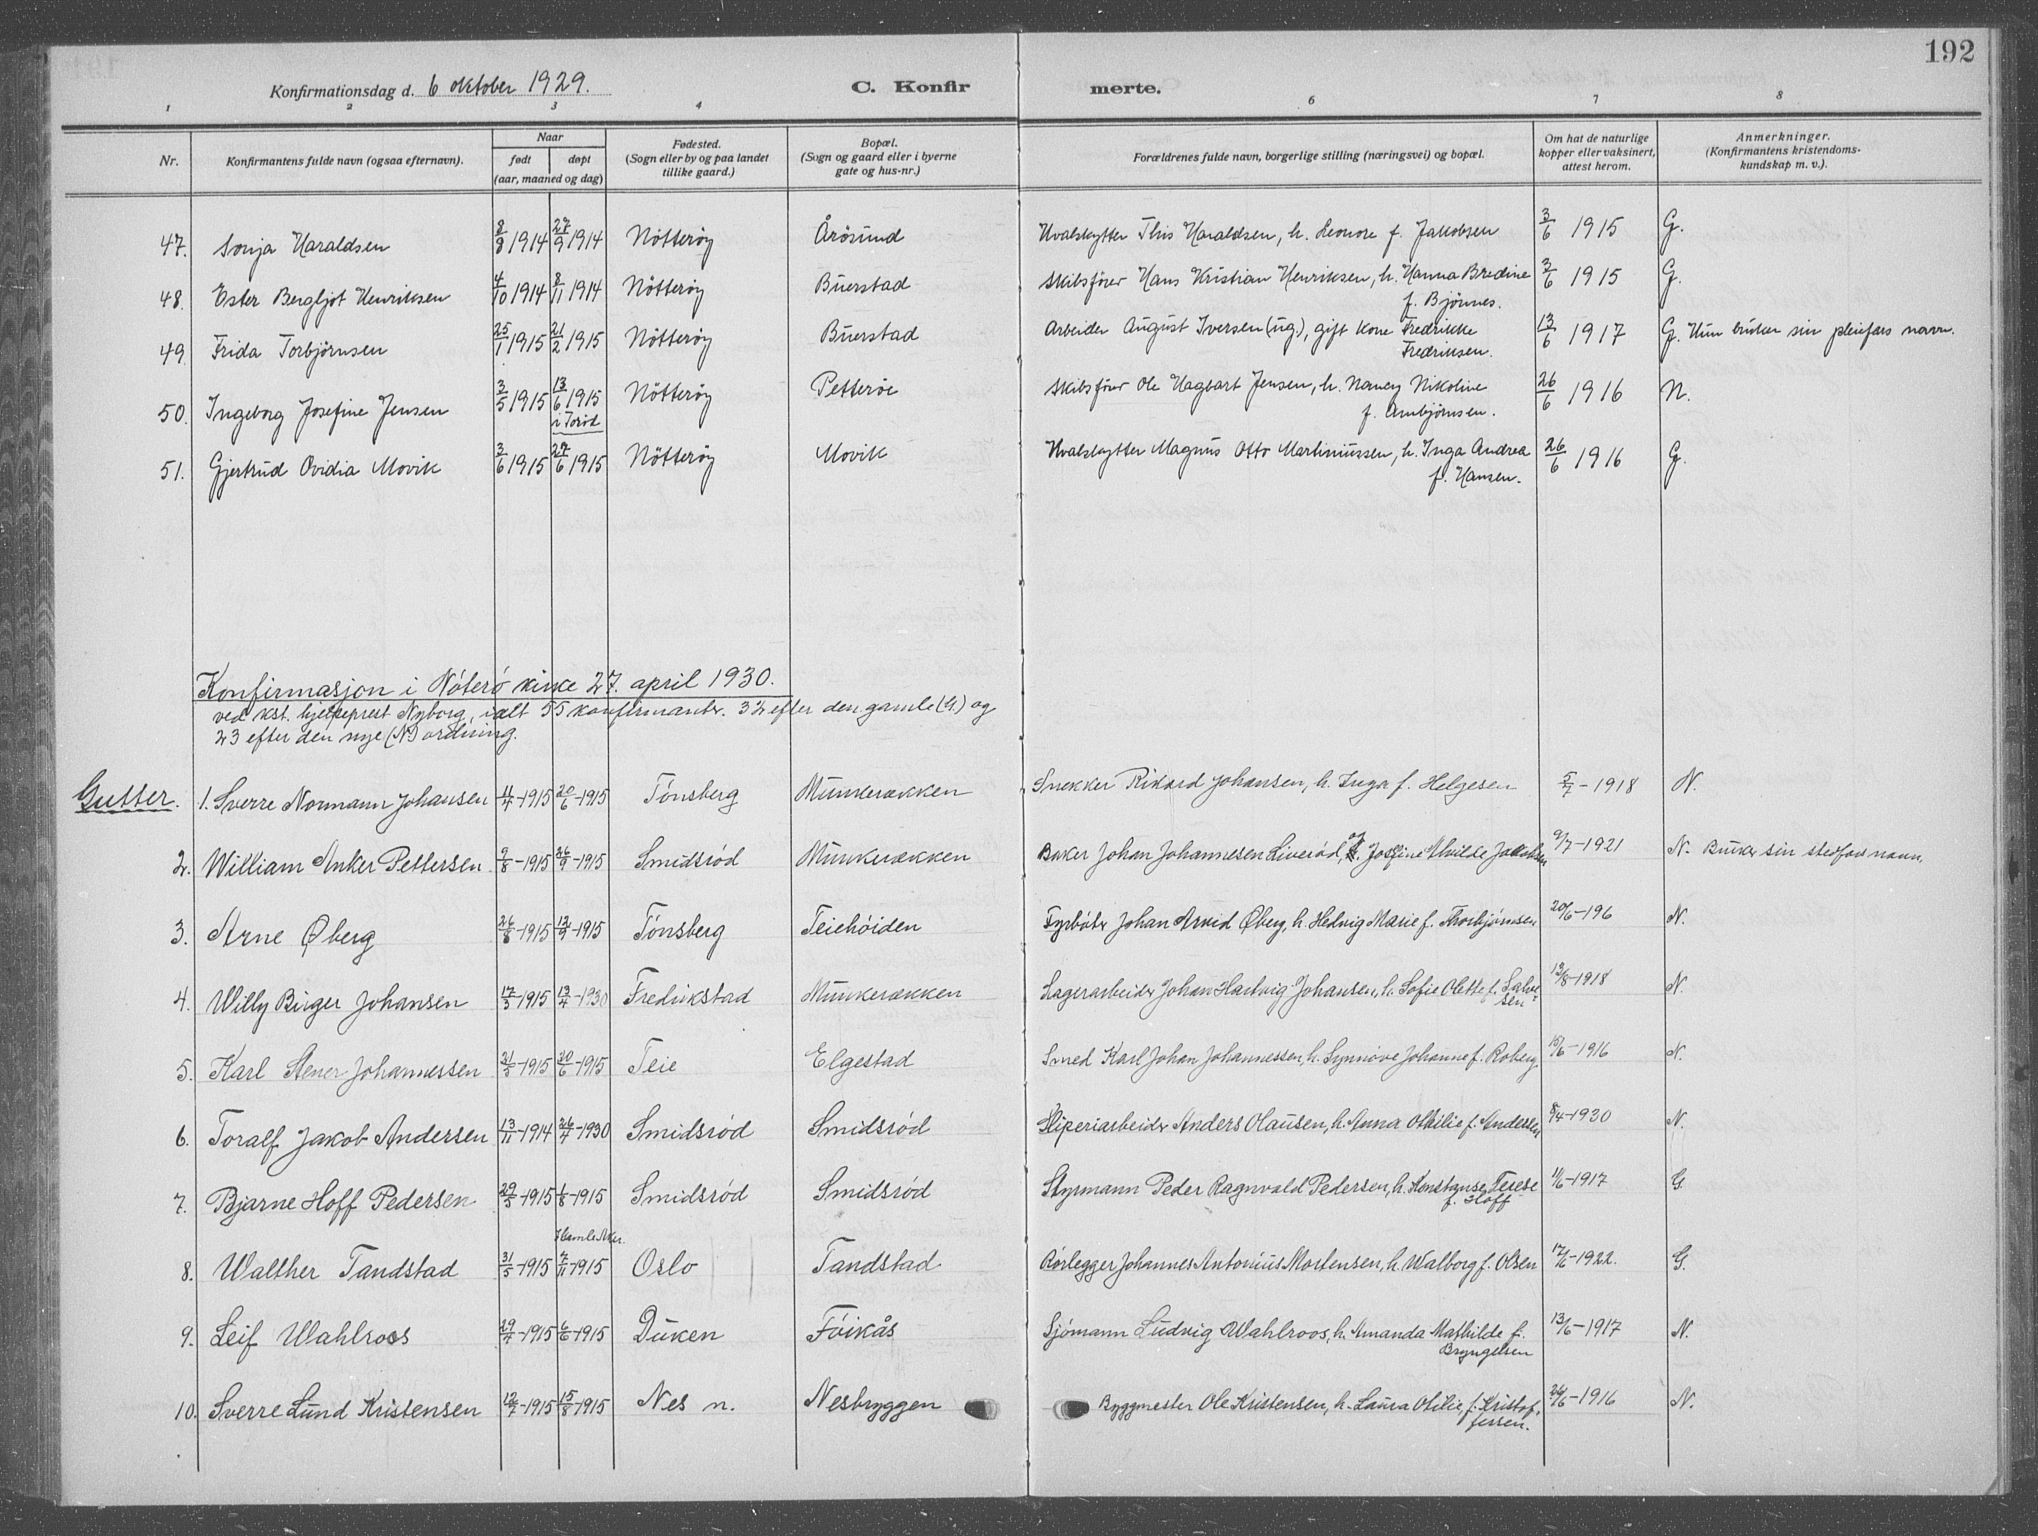 192
Konfirmationsdag d. 6 oktober 1929. C. Konfir merte.
1 2 3 4 6 7 8
Nr. Konfirmantens fulde navn (ogsaa efternavn). Naar født døpt (aar, maaned og dag) Fødested. (Sogn eller by og paa landet tillike gaard.) Bopæl. (Sogn og gaard eller i byerne gate og hus-nr.) Forældrenes fulde navn, borgerlige stilling (næringsvei) og bopæl. Om hat de naturlige kopper eller vaksinert, attest herom. Anmerkninger. (Konfirmantens kristendoms-kundskap m. v.).
47. Sonja Haraldsen 8/9 1914 27/9 1914 Nötteröy Årösund Hvalskytter This Haraldsen, h. Leonore f. Jakobsen 3/6 1915 G.
48. Ester Bergljot Henriksen 4/10 1914 8/11 1914 Nötteröy Buerstad Skibsförer Hans Kristian Henriksen, h. Hanna Bredine 3/6 1915 G.
f. Björnes.
49. Frida Torbjörnsen 25/1 1915 21/2 1915 Nötteröy Buerstad Arbeider August Iversen (ug.), gift kone Fredrikke 13/6 1917 G. Hun bruker sin pleiefars navn.
Fredriksen.
50. Ingeborg Josefine Jensen 3/5 1915 13/6 1915 Nötteröy Petteröe Skibsförer Ole Hagbart Jensen, h. Nancy Nikoline 26/6 1916 N.
i Torød f. Arnbjörnsen.
51. Gjertrud Ovidia Movik 3/6 1915 27/6 1915 Nötteröy Movik Hvalskytter Magnus Otto Martiniussen, h. Inga Andrea 26/6 1916 G.
f. Hansen.
Konfirmasjon i Nöterö kirke 27. april 1930.
ved kst. hjelpeprest Nyborg, ialt 55 konfirmanter. 32 efter den gamle (G.) og
23 efter den nye (N) ordning.
Gutter. 1. Sverre Normann Johansen 11/4-1915 20/6-1915 Tønsberg Munkerækken Snekker Rikard Johansen, h. Inga f. Helgesen 5/7-1918 N.
2. William Anker Pettersen 9/8-1915 26/9-1915 Smidsrød Munkerækken Baker Johan Johannesen Liverød, og Josefine Alvilde Jakobsen 9/7-1921 N. Bruker sin stedfars navn.
3. Arne Øberg 26/8-1915 12/9-1915 Tønsberg Teiehöiden Fyrböter Johan Arvid Øberg, h. Hedvig Marie f. Thorbjørnsen 20/6-196 N.
4. Willy Birger Johansen 17/3-1915 13/4-1930 Fredrikstad Munkerækken Lagerarbeider Johan Hartvig Johansen, h. Sofie Olette f. Salve- 13/8-1918 N.
sen
5. Karl Stener Johannessen 31/3-1915 20/6-1915 Teie Elgestad Smed Karl Johan Johannessen, h. Synnöve Johanne f. Roberg 15/6-1916 N.
6. Toralf Jakob Andersen 13/11-1914 26/4-1930 Smidsrød Smidsrød Sliperiarbeider Anders Olausen, h. Anna Othilie f. Andersen 8/4-1930 N.
7. Bjarne Hoff Pedersen 29/5-1915 1/8-1915 Smidsrød Smidsrød Styrmann Peder Ragnvald Pedersen, h. Konstanse Terese 11/6-1917 G.
f. Hoff
Gamle Aker.
8. Walther Tandstad 31/5-1915 7/11-1915 Oslo Tandstad Rørlegger Johannes Antonius Mortensen, h. Walborg f. Olsen 17/6-1922. G.
9. Leif Wahlroos 29/4-1915 6/6-1915 Duken Föikås Sjömann Ludvig Wahlroos, h. Amanda Mathilde f. 13/6-1917 N.
Bryngelsen
10. Sverre Lund Kristensen 12/7-1915 15/8-1915 Nes n. Nesbryggen Byggmester Ole Kristensen, h. Laura Otilie, f. Kristof- 26/6-1916 N.
fersen.